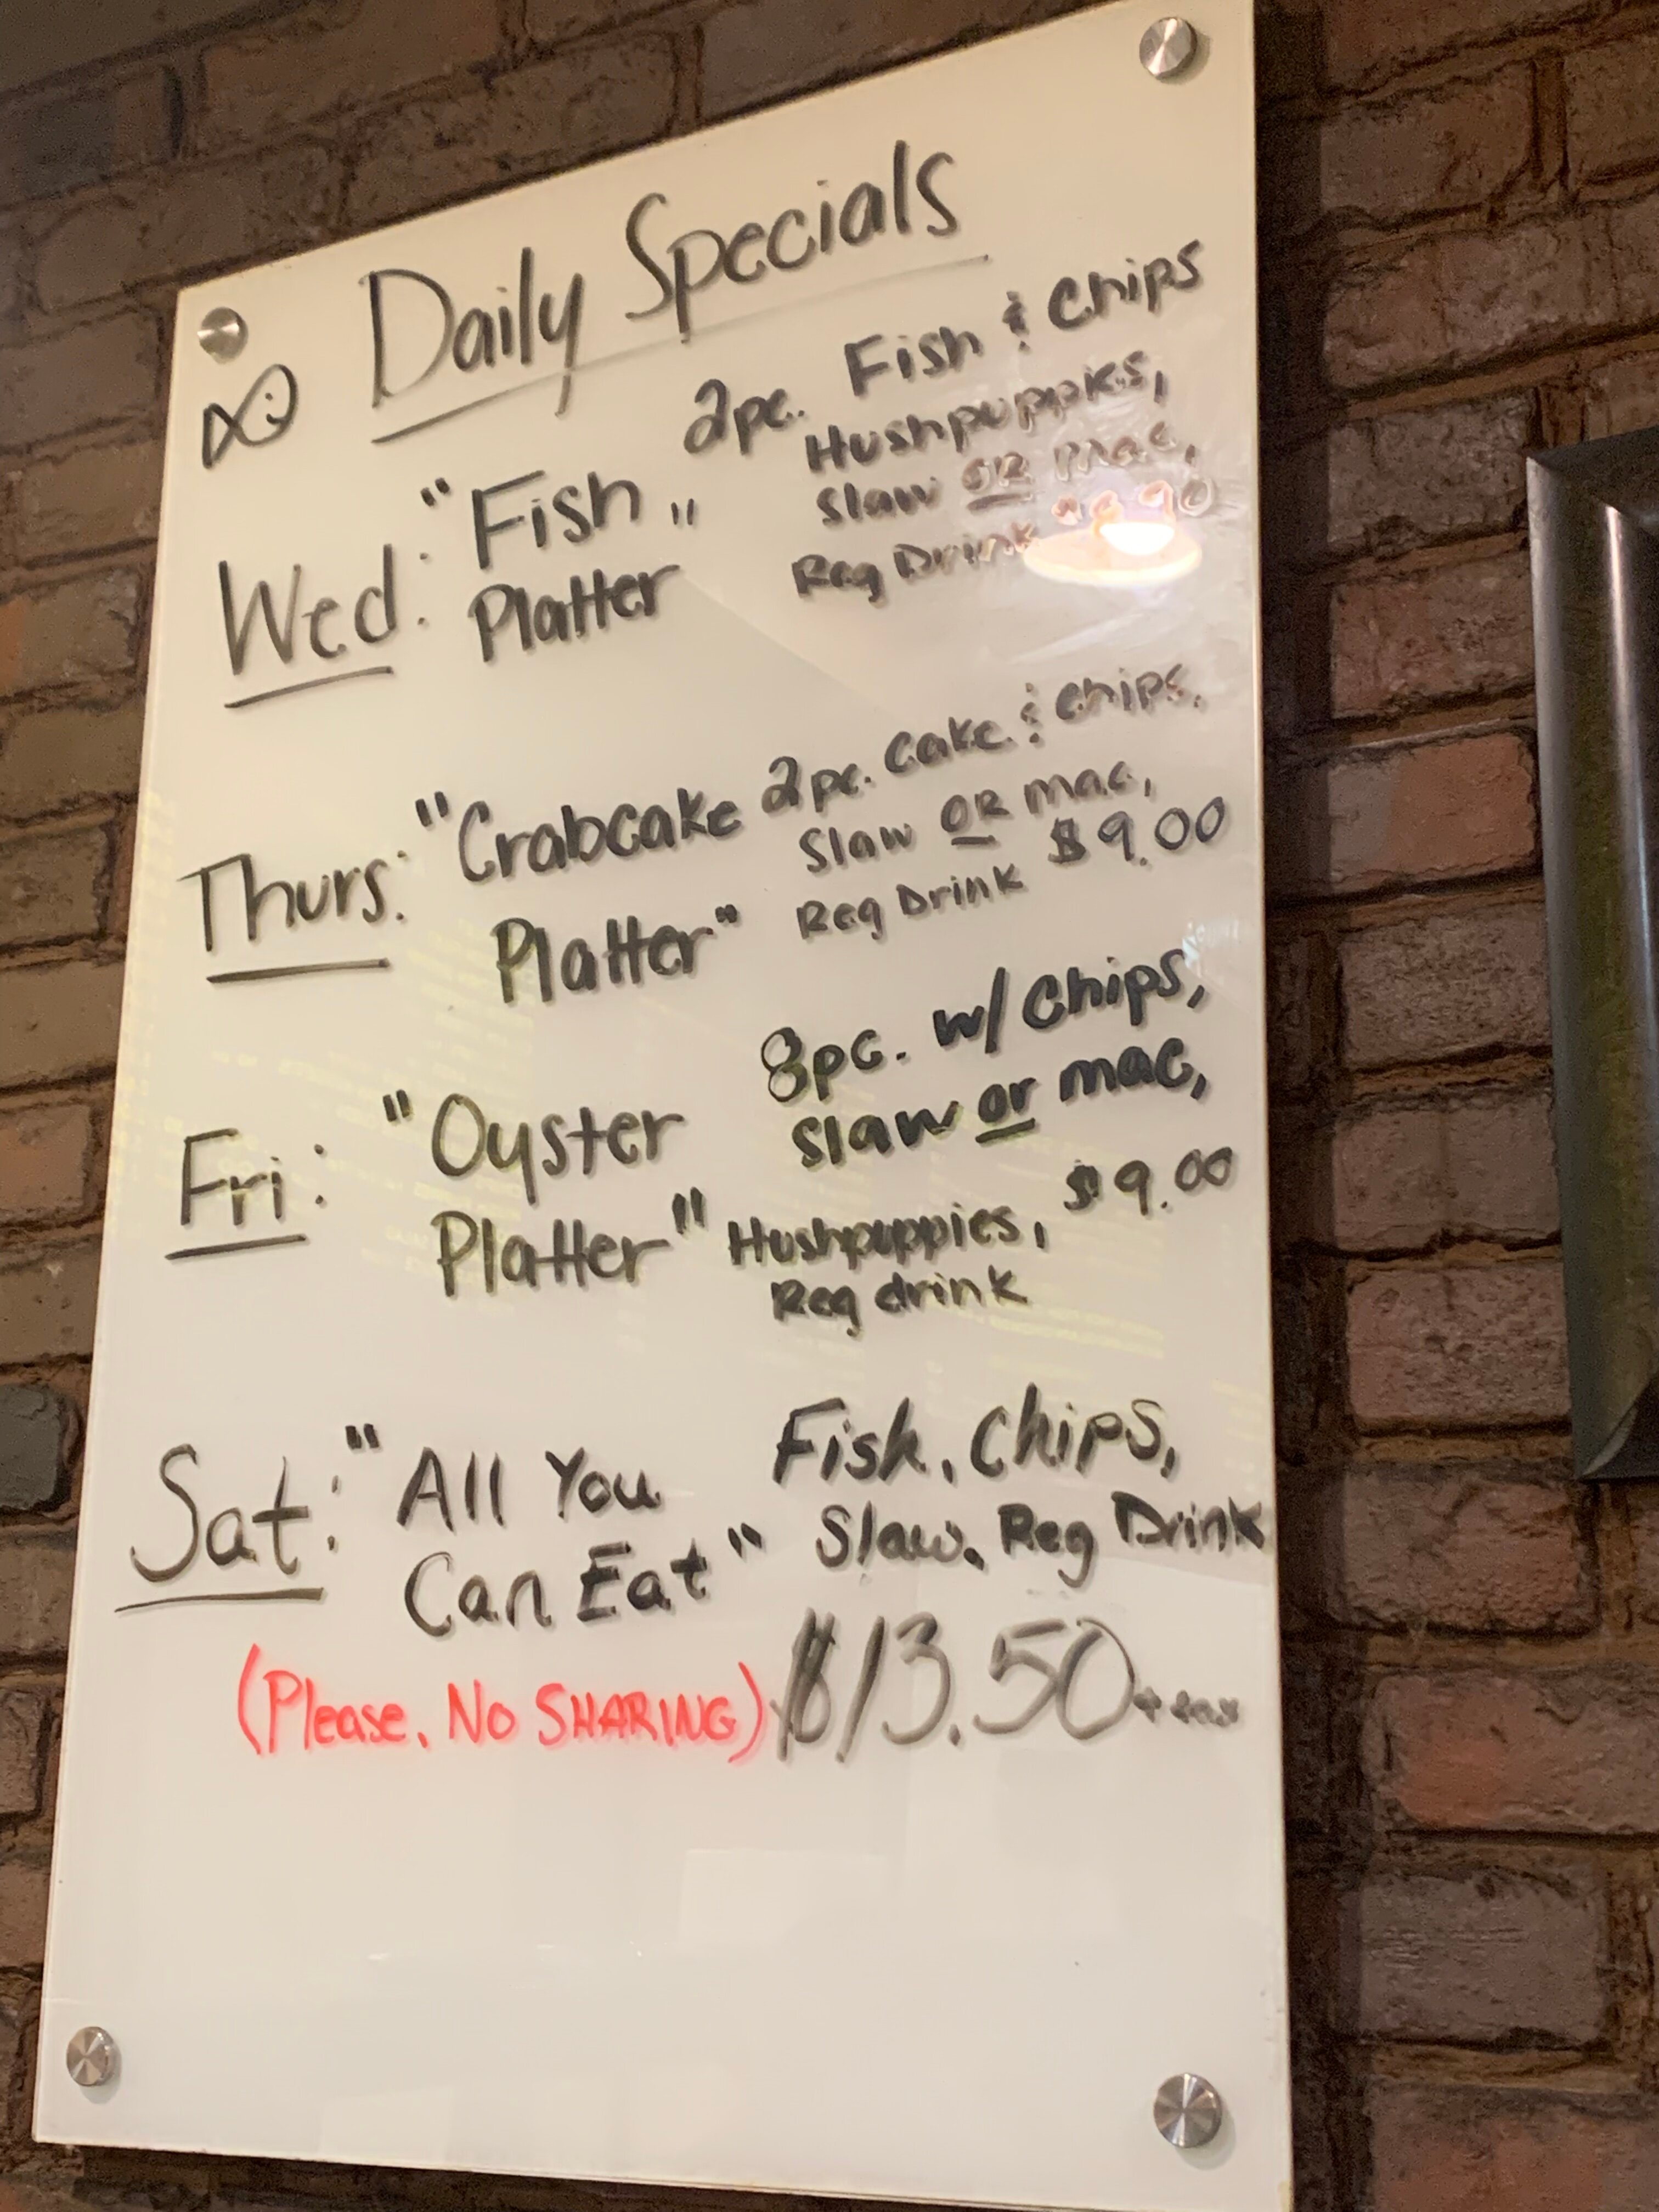 Daily Specials
Wed: "Fish Platter" 2pc. Fish & Chips
Hushpuppies,
Slaw OR Mac,
Reg Drink
Thurs: "Crabcake Platter" 2pc. Cake & Chips,
Slaw OR Mac,
Reg Drink $9.00
Fri: "Oyster Platter" 8pc. w/ Chips,
Slaw or mac,
Hushpuppies, $9.00
Reg drink
Sat: "All You Can Eat" Fish, Chips,
Slaw, Reg Drink
(Please, No SHARING) $13.50 + tax